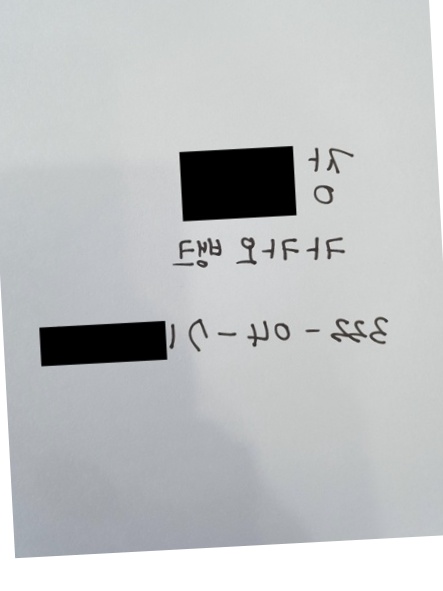 장
카카오 뱅크
3333-04-71